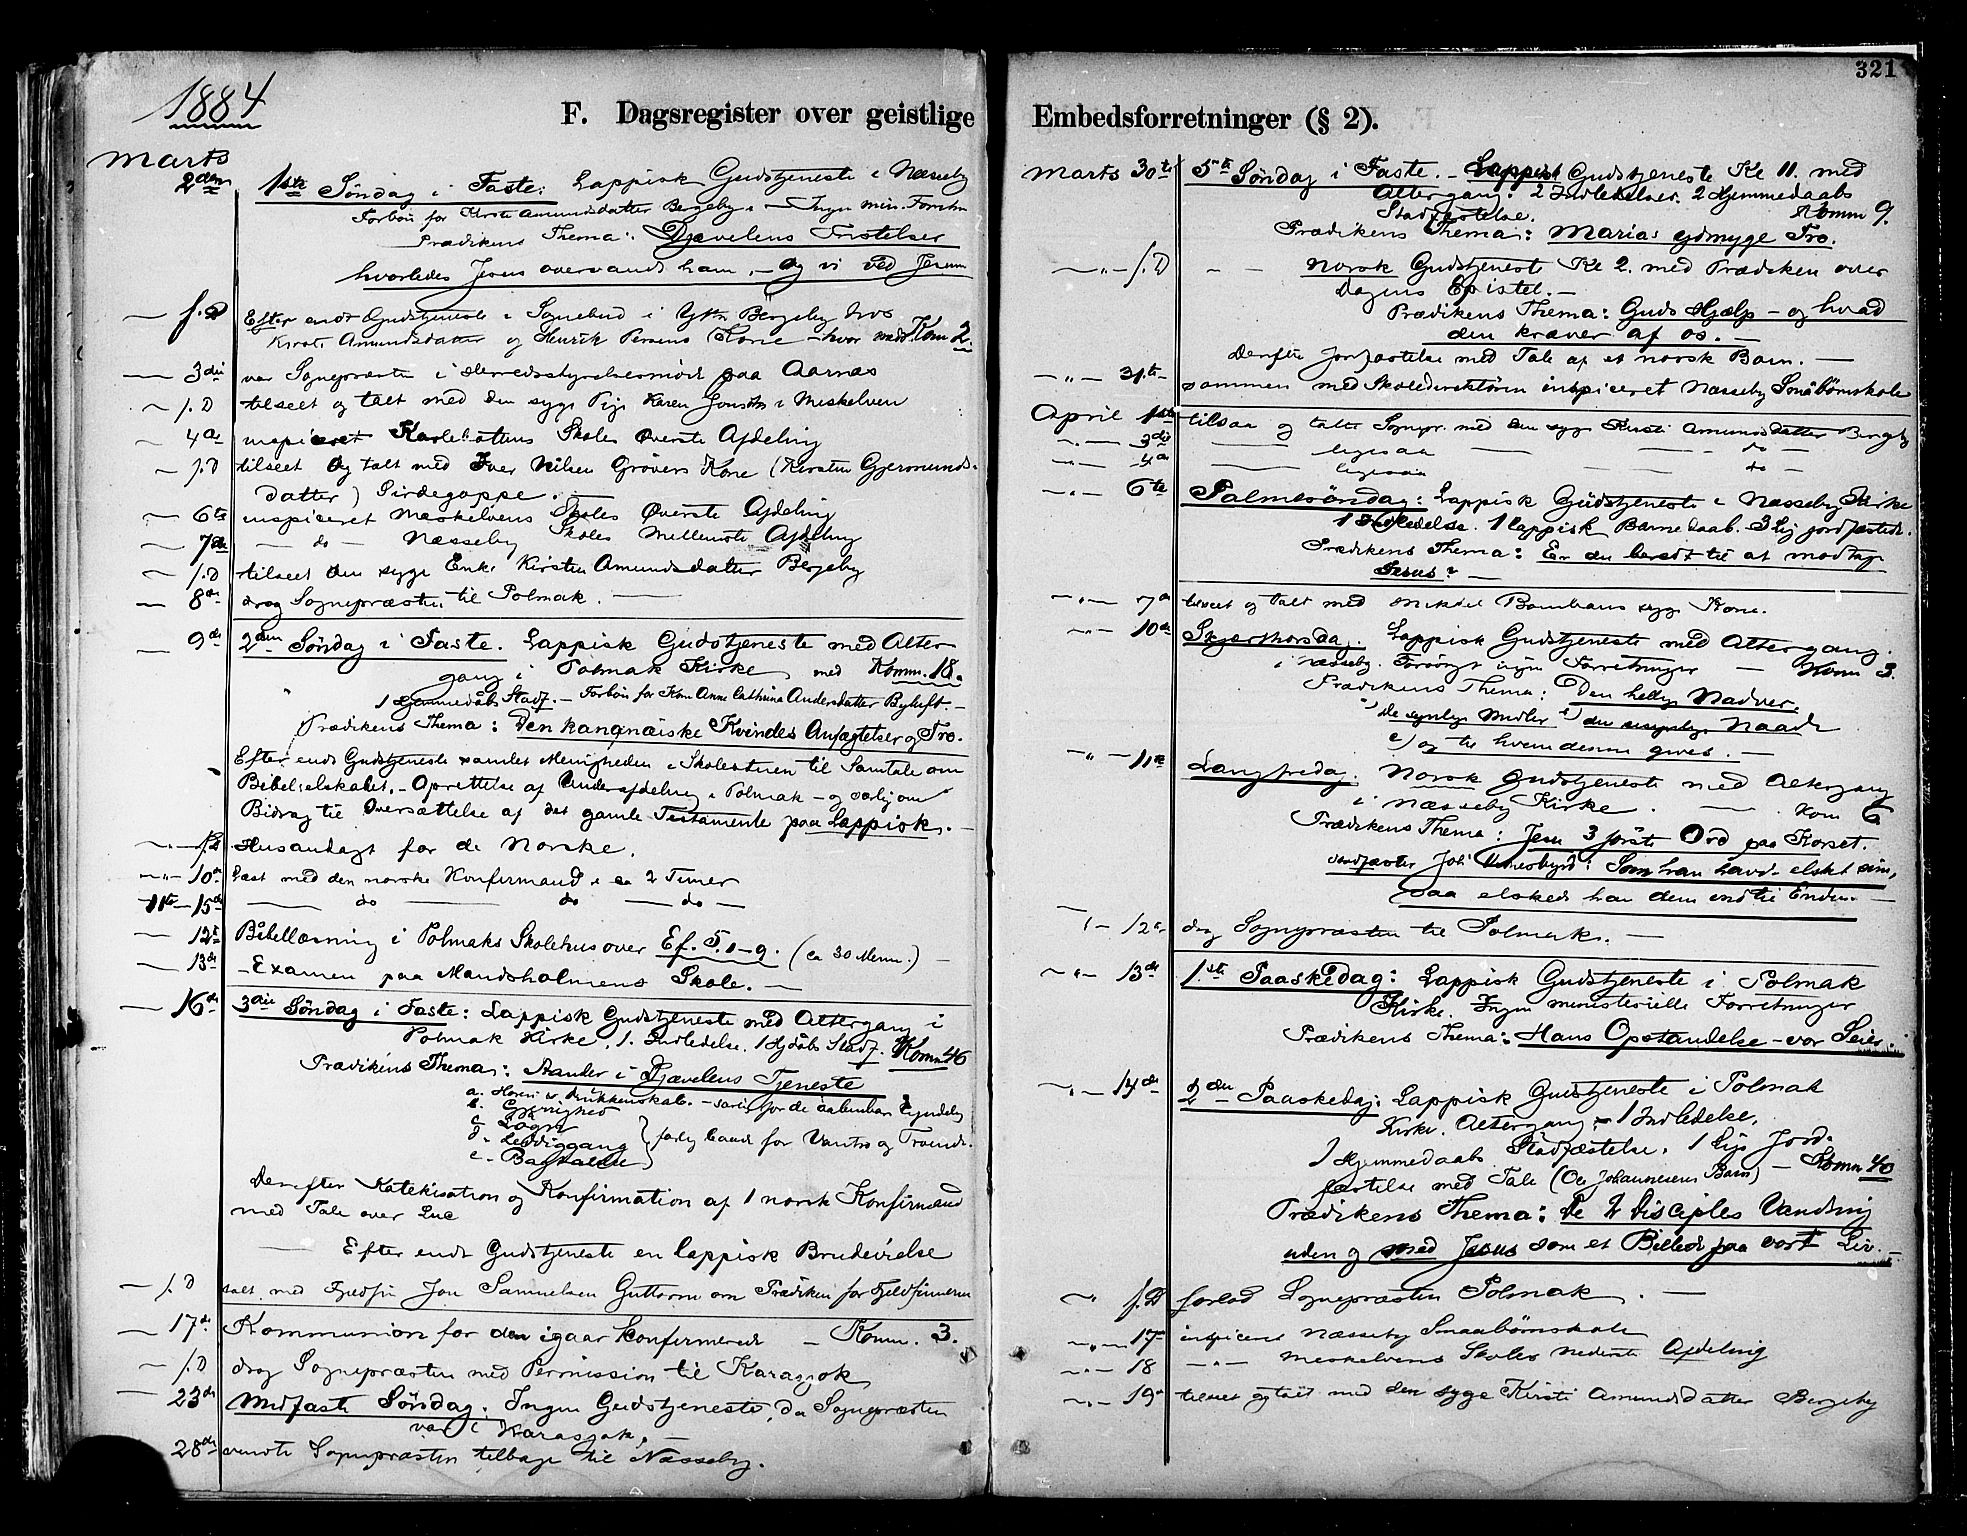 1884
F. Dagsregister over geistlige
Marts
2den 1ste Søndag i Faste: Lappisk Gudstjeneste i Næsseby
Forbøn for Kirsti Amundsdatter Bergeby. - Ingen min. Forretn
Prædikens Thema: Djævelens Fristelser
hvorledes Jesus overvandt ham, - og vi ved Jesum
— s.D Efter endt Gudstjeneste i Sognebud i Yttre Bergeby hos
Kirsti Amundsdatter og Henrik Persens Kone - hvor meds Kom 2.
— 3die var Sognepræsten i Herredsstyrelsesmøde paa Aarnæs
— s.D tilseet og talt med den syge Pige Karen Jonsdtr i Meskelven
— 4de inspiceret Karlebottens Skoles Øverste Afdeling
— s.D tilseet og talt med Iver Nilsen Grøvers Kone (Kirsten Gjermunds-
datter) Sirdegoppe. —
— 6te inspiceret Mæskelvens Skoles Øverste Afdeling
— 7de — do — Næsseby Skoles Mellemste Afdeling
— s.D tilseet den syge Enke Kirsten Amundsdatter Bergeby
— 8de drog Sognepræsten til Polmak. —
— 9de 2den Søndag i Faste. Lappisk Gudstjeneste med Alter
gang i Polmak Kirke, med Komm. 18.
1 Hjemmedåbs Stadf. - Forbøn for Kone Anne Cathrina Andersdatter Byluft. -
Prædikens Thema: Den kananæiske Kvindes Anfægtelser og Tro.
Efter endt Gudstjeneste samlet Menigheden i Skolestuen til Samtale om
Bibelselskabet. - Oprettelse af Underafdeling i Polmak - og særlig om
Bidrag til Oversættelse af det gamle Testamente paa Lappisk. -
— s.D Husandagt for de Norske.
— " — 10de læst med den norske Konfirmand i ca 2 Timer
11te — 15de — do — do — do —
— 12te Bibellæsning i Polmaks Skolehus over Ef. 5. 1-9. (ca 30 Menn.) —
— 13de - Examen paa Mandsholmens Skole. —
— 16de 3die Søndag i Faste: Lappisk Gudstjeneste med Altergang i
Polmak Kirke. 1. Indledelse. 1 Hjdåbs Stadf. Komm 46
Prædikens Thema: Aander i Djævelens Tjeneste
a. Hoveri og Drukkenskab. - særlig for de aabenbar Ugudelig
b. Gjerrighed
c. Løgn
d. Lediggang } farlig baade for Vantro og Troende.
e. Bagtalelse
Derefter Katekisation og Konfirmation af 1 norsk Konfirmand
med Tale over Luc
— Efter endt Gudstjeneste en lappisk Brudevielse
— s.D talt med Fjeldfin Jon Samuelsen Guttorm om Prædiken for Fjeldfinnerne
— 17de Kommunion for den igaar Konfirmerede — Komm. 3.
— s.D drog Sognepræsten med Permission til Karasjok
— 23de Midfaste Søndag. Ingen Gudstjeneste, da Sognepræsten
var i Karasjok. —
28de vendte Sognepræsten tilbage til Næsseby.
321
Embedsforretninger (§ 2).
Marts 30te 5te Søndag i Faste. - Lappisk Gudstjeneste Kl 11. med
Altergang. 2 Indledelser. 2 Hjemmedaabs
Stadfæstelse. Komm 9.
Prædikens Thema: Marias ydmyge Tro.
— " — s.D — — Norsk Gudstjeneste Kl 2. med Prædiken over
Dagens Epistel. —
Prædikens Thema: Guds Hjælp - og hvad
den kræver af os. —
Derefter Jordfæstelse med Tale af et norsk Barn. —
— " — 31te sammen med Skoledirektøren inspiceret Næsseby Småbørnskole
April 1ste tilsaa og talte Sognepr. med den syge Kirsti Amundsdatter Bergeby
— " — 3die — ligesaa — do —
— " — 4de — ligesaa — do —
— " — 6te Palmesøndag: Lappisk Gudstjeneste i Næsseby Kirke
1 Indledelse. 1 lappisk Barnedaab. 3 Lig jordfæstede.
Prædikens Thema: Er du beredt til at modtage
Jesus? —
— " — 7de tilseet og talt med syge Kone.
— " — 10de Skjærthorsdag. Lappisk Gudstjeneste med Altergang.
i Næsseby. Forøvrigt ingen Forretninger — Komm 3.
Prædikens Thema: Den hellige Nadver.
a) De synlige Midler b) den usynlige Naade
c) og til hvem denne gives. —
— " — 11te Langfredag. Norsk Gudstjeneste med Altergang
i Næsseby Kirke. — Kom 6
Prædikens Thema: Jesu 3 første Ord paa Korset.
Joh' : Som han havde elsket sine,
saa elsked han dem indtil Enden. —
— " — 12te drog Sognepræsten til Polmak. —
— " — 13de 1ste Paaskedag: Lappisk Gudstjeneste i Polmak
Kirke. Ingen ministerielle Forretninger
Prædikens Thema: Hans Opstandelse - vor Seier.
— " — 14de 2den Paaskedag: Lappisk Gudstjeneste i Polmak
Kirke. Altergang - 1 Indledelse.
1 Hjemmedaabs Stadfæstelse. 1 Ligs Jord-
fæstelse med Tale (Ole Johannesens Barn) — Komm 40
Prædikens Thema: De 2 Disciples Vandring
uden og med Jesus som et Billede paa vort Liv. —
— " s.D forlod Sognepræsten Polmak. —
— " — 17de inspiceret Næsseby Smaabørnskole
— " — 18 — " — Meskelvens Skoles nederste Afdeling
— " — 19de tilseet og talt med den syge Kirsti Amundsdatter Bergeby